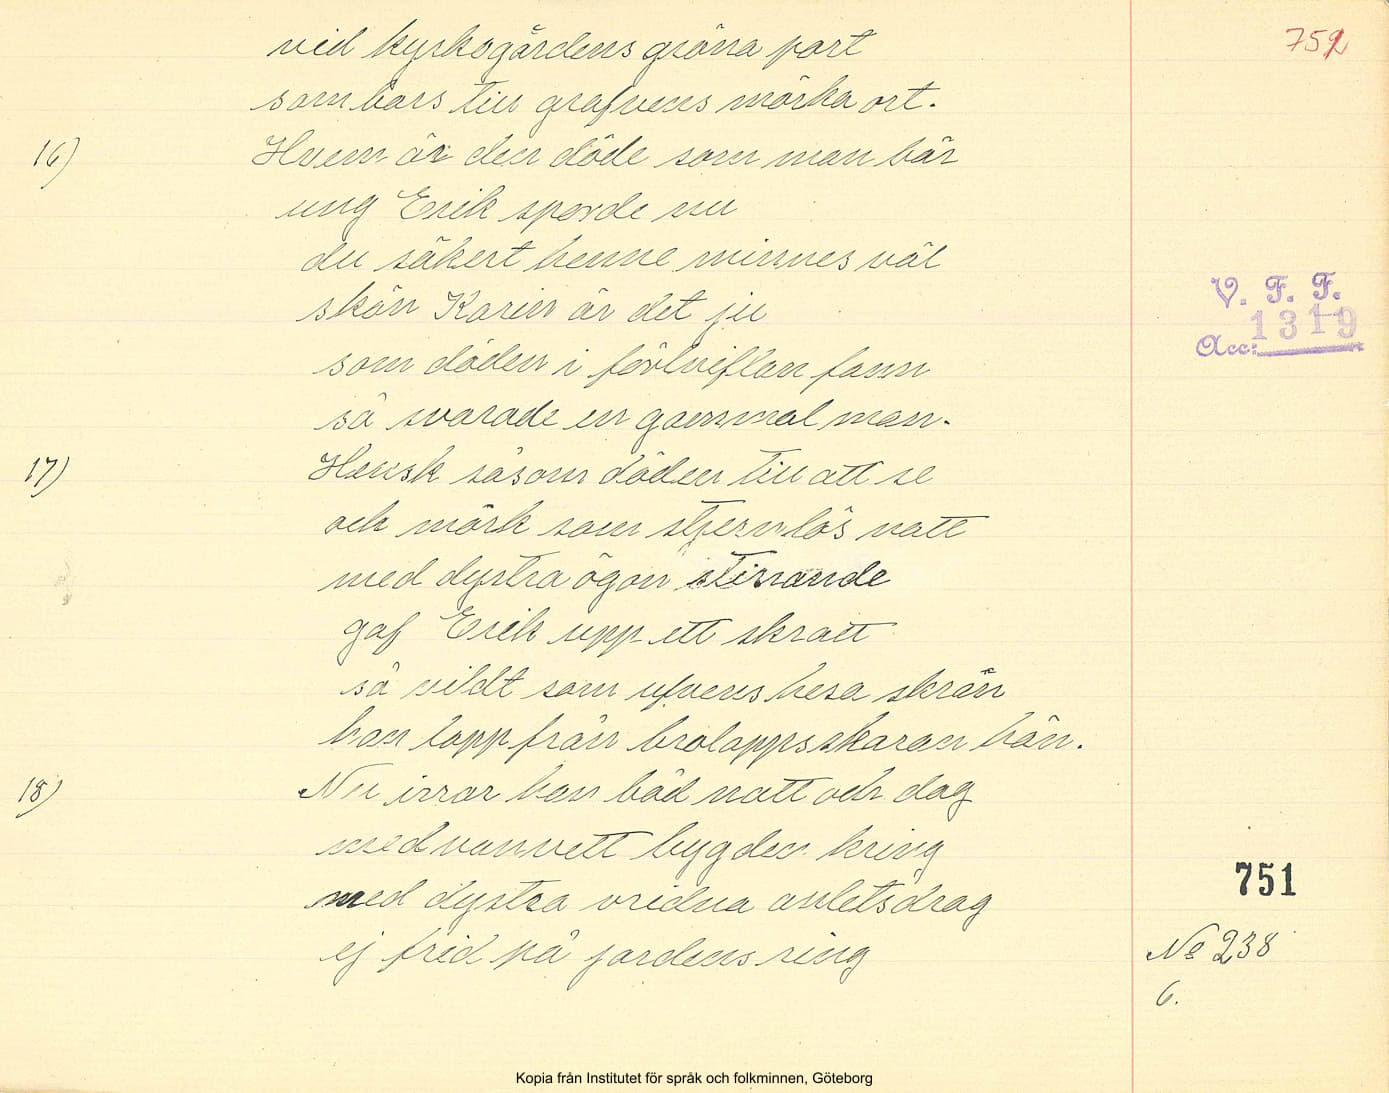 vid kyrkogårdens gröna port
752
som bars till grafvens mörka ort.
16) Hvem är den döde som man bär
ung Erik sporde nu
du säkert henne minnes väl
V. F. F.
skön Karin är det ju
Acc: 1319
som döden i förtviflan fann
så svarade en gammal man.
17) Hemsk såsom döden till att se
och mörk som stjernlös natt
med dystra ögon stirrande
gaf Erik upp ett skratt
så vildt som ufvens hesa skrän
han lopp från brolappsskaran hän.
18) Nu irrar han båd natt och dag
med vanvett bygden kring
751
med dystra vridna anletsdrag
ej frid på jordens ring
No 238
6.
Kopia från Institutet för språk och folkminnen, Göteborg